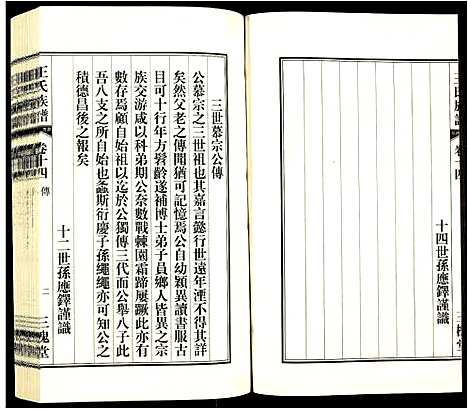 十四世孫應鐸謹識
三世慕宗公傳
公慕宗之三世祖也其嘉言懿行世遠年湮不得其詳
矣然父老之傳聞猶可記憶焉公自幼穎異讀書服古
目可十行年方髫齡遂補博士弟子員鄉人皆異之宗
族交游咸以科弟期公奈數戰棘闈霜蹄屢蹶此亦有
數存焉顧自始祖以迄於公獨傳三代而公舉八子此
吾八支之所自始也螽斯衍慶子孫繩繩亦可知公之
積德昌後之報矣
十二世孫應鐸謹識
王氏族譜
卷十四
傳
二
三槐堂